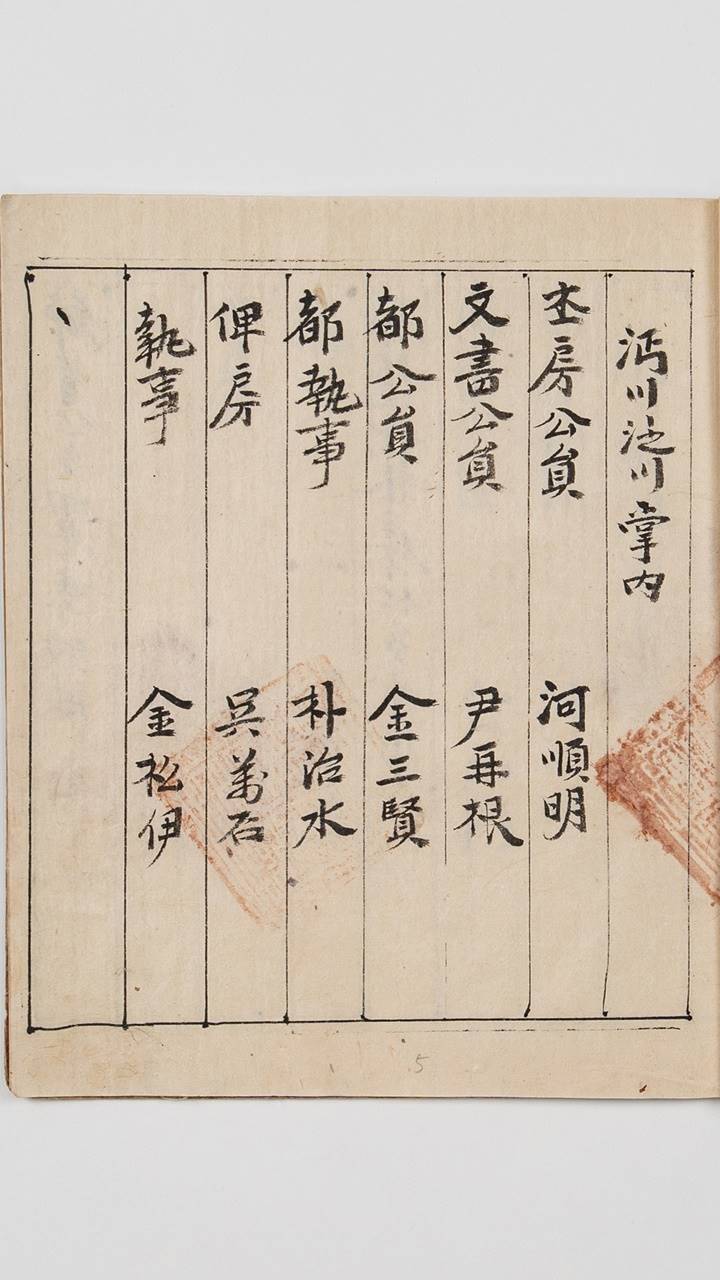 沔川沘川掌內
本房公員 河順明
文書公員 尹再根
都公員 金三賢
都執事 朴治水
俾房 吳萬石
執事 金松伊
5